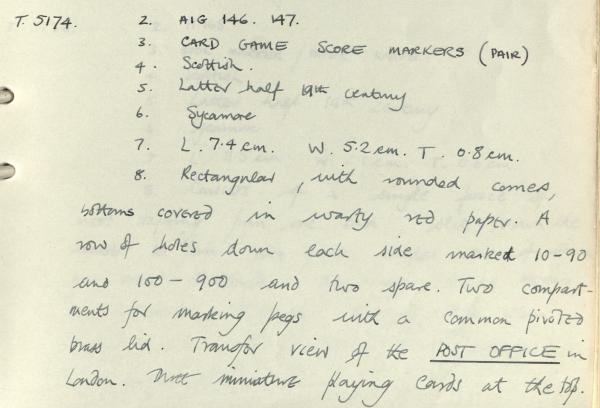 T. 5174. 2. AIG 146. 147.
3. CARD GAME SCORE MARKERS (PAIR)
4. Scottish.
5. Latter half 19th century
6. Sycamore
7. L. 7.4 cm. W. 5.2 cm. T. 0.8 cm.
8. Rectangular, with rounded corners,
bottoms covered in warty red paper. A
row of holes down each side marked 10-90
and 100-900 and two spare. Two compart-
ments for marking pegs with a common pivoted
brass lid. Transfer view of the POST OFFICE in
London. Three miniature playing cards at the top.